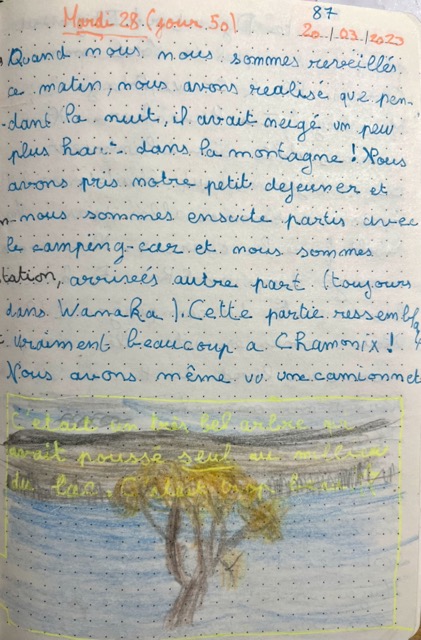 87
Mardi 28 (jour 50)
20 / 03 / 2023
Quand nous nous sommes reveillés
ce matin, nous avons realisé que pen-
-dant la nuit, il avait neigé un peu
plus haut dans la montagne ! Nous
avons pris notre petit dejeuner et
nous sommes ensuite partis avec
le camping-car et nous sommes
tation, arrineés autre part (toujours
dans Wanaka). Cette partie ressembla
vraiment beaucoup a Chamonix !
Nous avons même vu une camionnet
C'était un très bel arbre
avait poussé seul au milieu
du lac. C'était trop